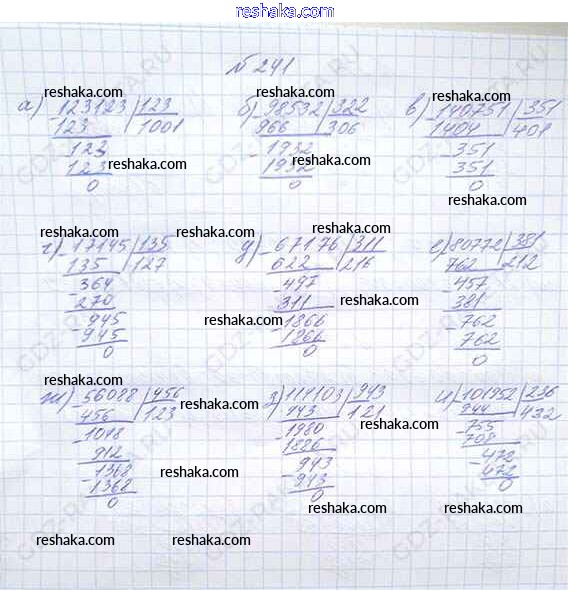 reshaka.com
№ 241
reshaka.com reshaka.com reshaka.com
а) 123123 | 123 б) 98532 | 322 в) 140751 | 351
123 | 1001 966 | 306 1404 | 401
reshaka.com reshaka.com
- 123 - 1932 - 351
123 reshaka.com 1932 351 reshaka.com
0 0 0
reshaka.com reshaka.com
г) - 17145 | 135 reshaka.com д) - 67176 | 311 е) 80772 | 381
135 | 127 622 | 216 762 | 212
- 364 - 497 - 457
270 311 reshaka.com 381
- 945 reshaka.com - 1866 - 762
945 1866 762
0 0 0
reshaka.com reshaka.com reshaka.com
ж) - 56088 | 456 з) 114103 | 943 и) 101952 | 236
456 | 123 reshaka.com 943 | 121 944 | 432
- 1048 - 1980 - 755
912 1886 708
- 1368 reshaka.com - 943 - 472
1368 - 943 472
0 0 0
reshaka.com reshaka.com
reshaka.com reshaka.com reshaka.com